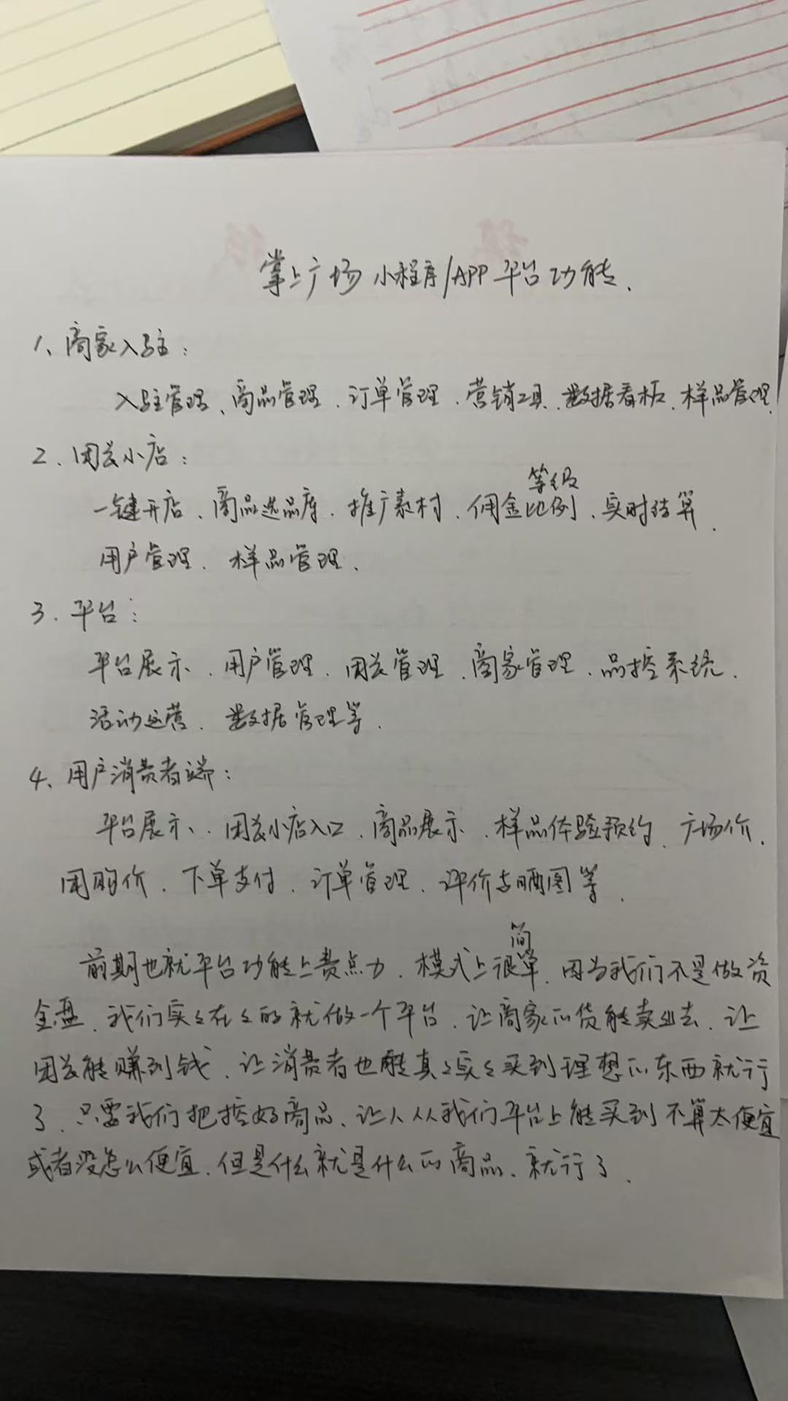 掌上广场小程序/APP平台功能.
1、商家入驻:
入驻管理、商品管理、订单管理、营销工具、数据看板、样品管理
2、团长小店:
一键开店、商品选品库、推广素材、佣金等级比例、实时结算、
用户管理、样品管理、
3、平台:
平台展示、用户管理、团长管理、商家管理、品控系统、
活动运营、数据管理等、
4、用户消费者端:
平台展示、团长小店入口、商品展示、样品体验预约、广场价、
团购价、下单支付、订单管理、评价与晒图等、
前期也就平台功能上费点力、模式上很简单、因为我们不是做资
金盘、我们实实在在的就做一个平台、让商家的货能卖出去、让
团长能赚到钱、让消费者也能真真实实买到理想的东西就行
了、只需我们把控好商品、让人从我们平台上能买到不算太便宜
或者没怎么便宜、但是什么就是什么的商品、就行了、